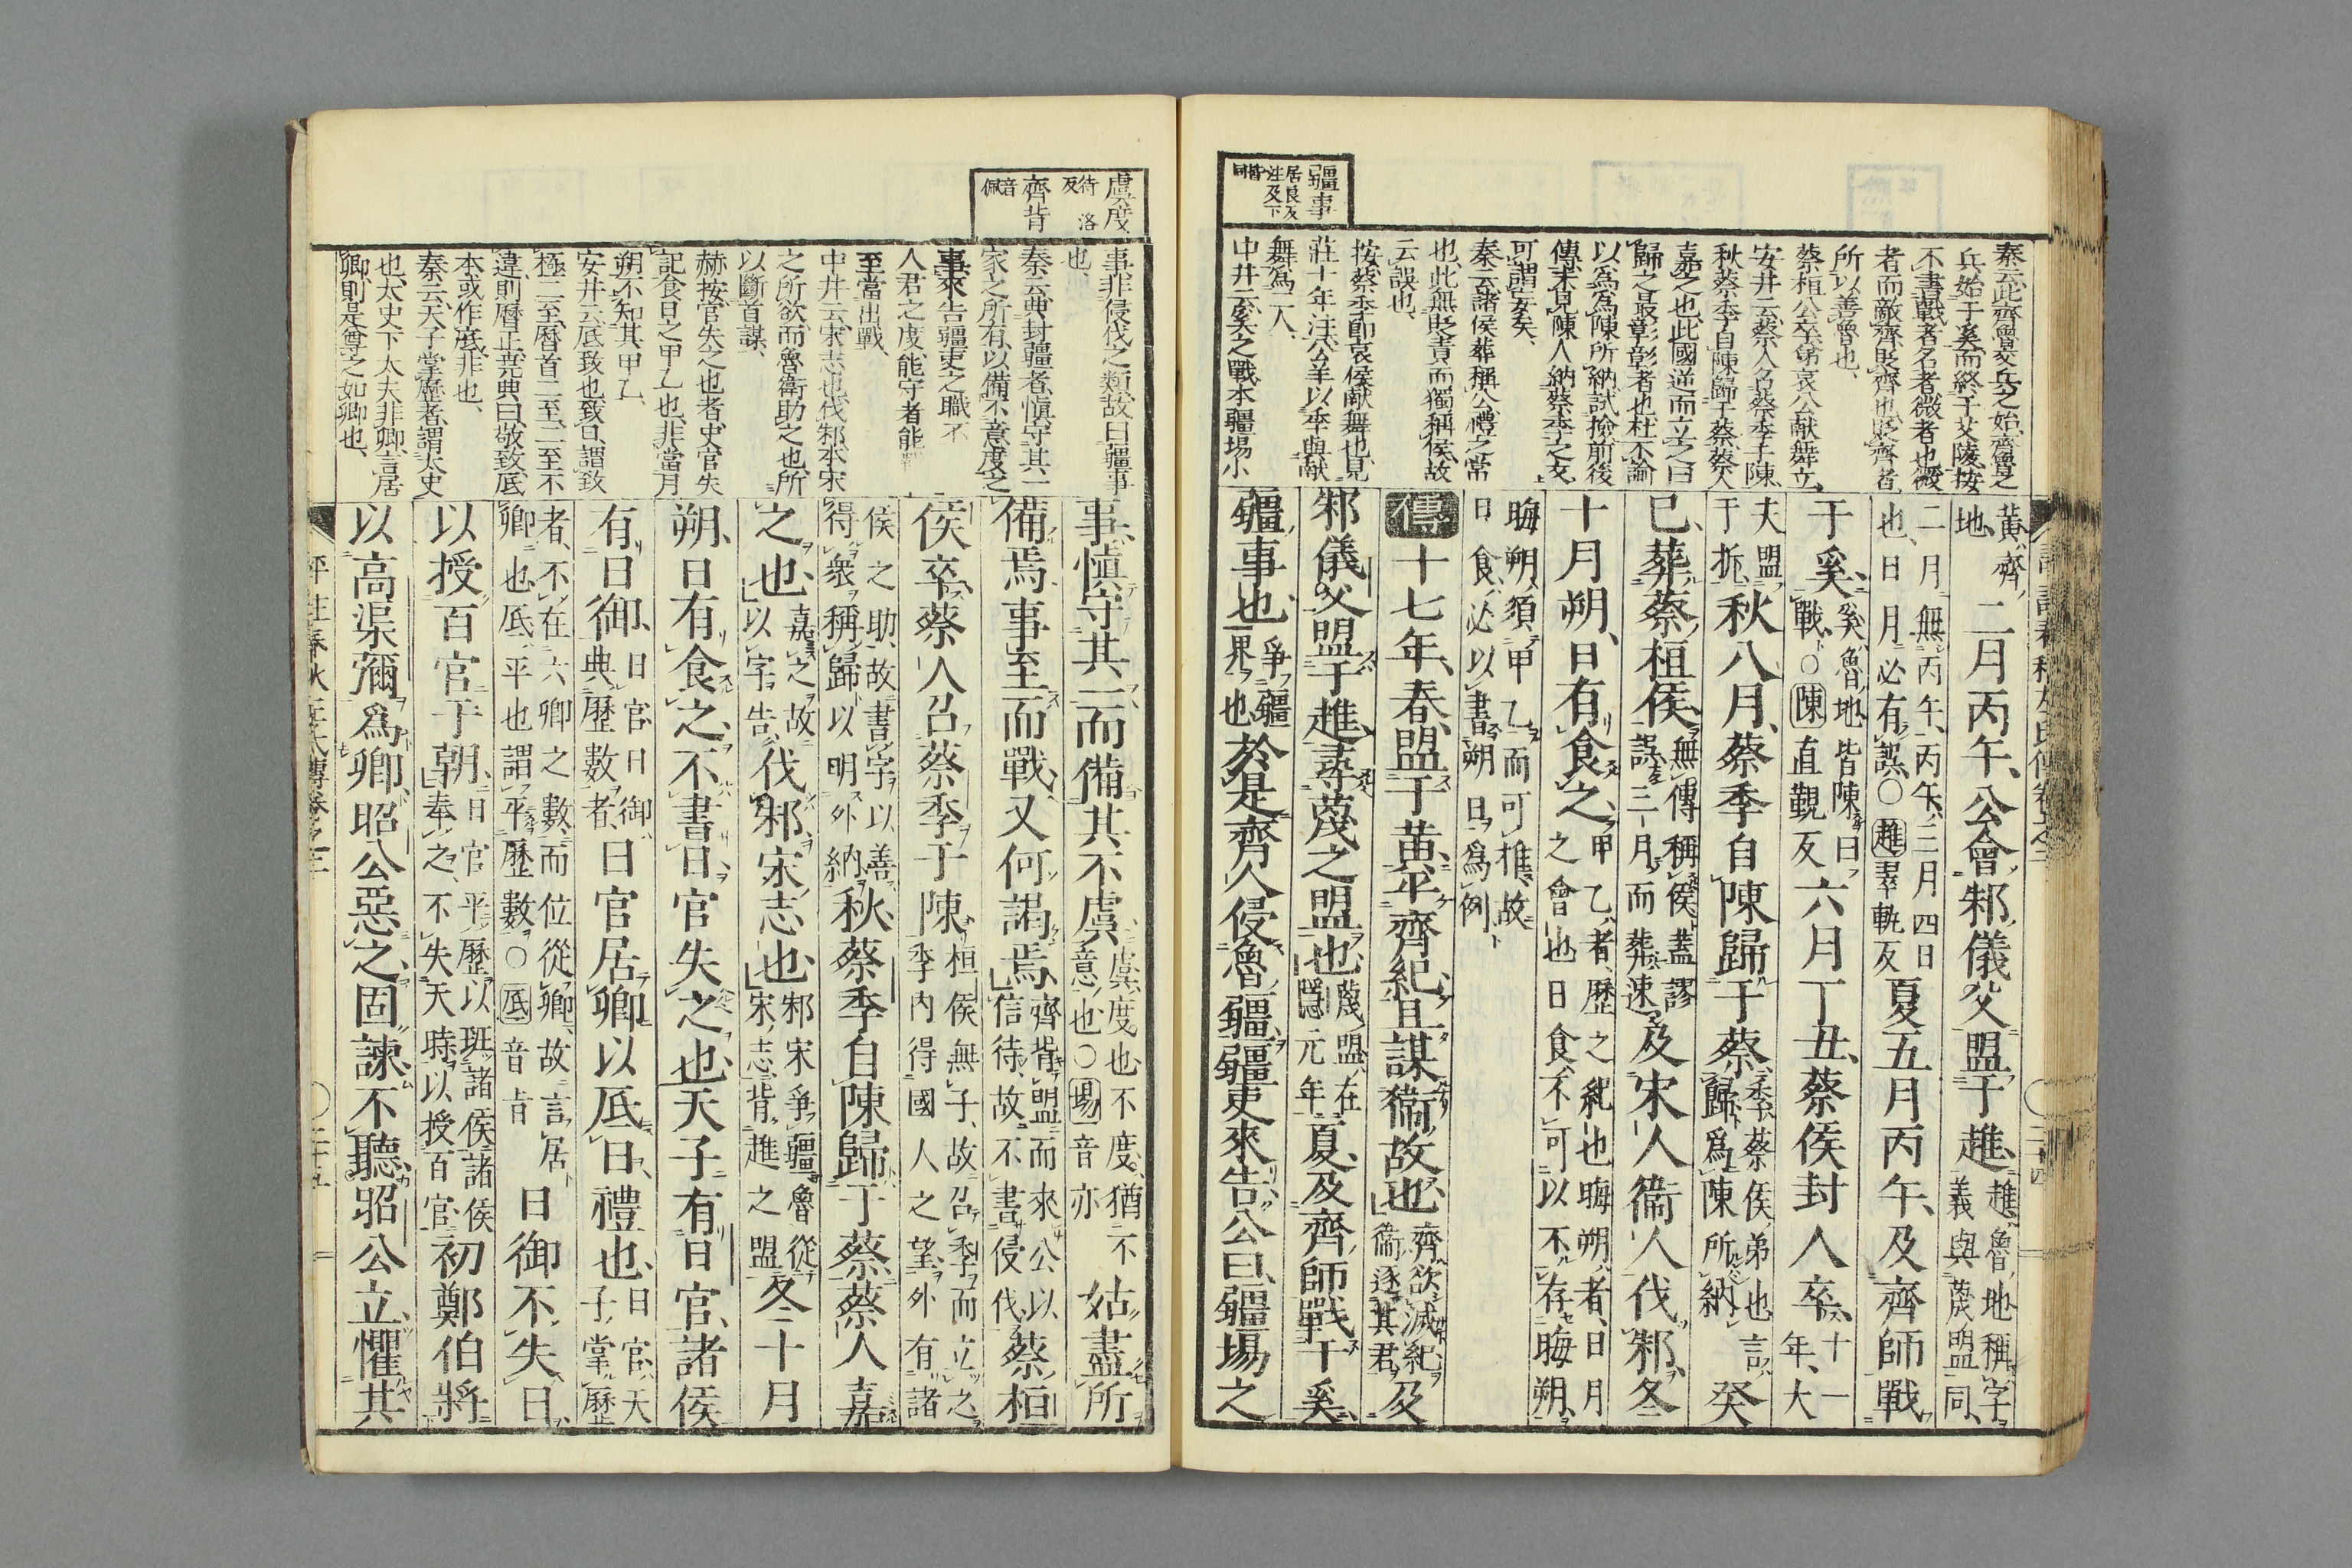 疆事
居良反
注及下
皆同
秦云此齊魯交兵之始齊魯之
兵始于奚而終于艾陵按
不書戰者名者微者也微
者而敵齊貶齊也貶齊者
所以善魯也
蔡桓公卒弟哀公献舞立
安井云蔡人名蔡季子陳
秋蔡季自陳歸于蔡蔡人
嘉之也此國逆而立之曰
歸之最彰彰者也杜不論
以爲爲陳所納試撿前後
傳未見陳人納蔡季之文
可謂妄矣
秦云諸侯葬稱公禮之常
也此無貶責而獨稱侯故
云誤也
按蔡季卽哀侯献舞也見
莊十年注公羊以季與献
舞爲二人
中井云奚之戰本疆埸小
黃齊
地
二月丙午公會邾儀父盟于趡
趡魯地稱字
義與蔑盟同
二月無丙午丙午三月四日
也日月必有誤○趡翠軌反
夏五月丙午及齊師戰
于奚
奚魯地皆陳曰
戰○陳直觀反
六月丁丑蔡侯封人卒
十一
年大
夫盟
于折
秋八月蔡季自陳歸于蔡
季蔡侯弟也言
歸爲陳所納
癸
巳葬蔡桓侯
無傳稱侯蓋謬
誤三月而葬速
及宋人衞人伐邾冬
十月朔日有食之
甲乙者歷之紀也晦朔者日月
之會也日食不可以不存晦朔
晦朔須甲乙而可推故
日食必以書朔日爲例
傳十七年春盟于黃平齊紀且謀衞故也
齊欲滅紀
衞逐其君
及
邾儀父盟于趡尋蔑之盟也
蔑盟在
隱元年
夏及齊師戰于奚
疆事也
爭疆
界也
於是齊人侵魯疆疆吏來告公曰疆埸之
虞度
待洛
反
齊背
音
佩
事非侵伐之類故曰疆事
也
秦云典封疆者愼守其一
家之所有以備不意度之
事來告疆吏之職不
人君之度能守者能
至當出戰
中井云宋志也伐邾本宋
之所欲而魯衞助之也所
以斷首謀
赫按官失之也者史官失
記食日之甲乙也非當月
朔不知其甲乙
安井云厎致也致日謂致
極二至曆首二至二至不
違則曆正堯典曰敬致厎
本或作底非也
秦云天子掌歷者謂太史
也太史下太夫非卿言居
卿則是尊之如卿也
事愼守其一而備其不虞
虞度也不度猶不
意也○埸音亦
姑盡所
備焉事至而戰又何謁焉
齊背盟而來公以
信待故不書侵伐
蔡桓
侯卒蔡人召蔡季于陳
桓侯無子故召季而立之
季內得國人之望外有諸
侯之助故書字以善
得衆稱歸以明外納
秋蔡季自陳歸于蔡蔡人嘉
之也
嘉之故
以字告
伐邾宋志也
邾宋爭疆魯從
宋志背趡之盟
冬十月
朔日有食之不書日官失之也天子有日官諸侯
有日御
日官日御
典歷數者
日官居卿以厎日禮也
日官天
子掌歷
者不在六卿之數而位從卿故言居
卿也厎平也謂平歷數○厎音旨
日御不失日
以授百官于朝
日官平歷以班諸侯諸侯
奉之不失天時以授百官
初鄭伯將
以高渠彌爲卿昭公惡之固諫不聽昭公立懼其